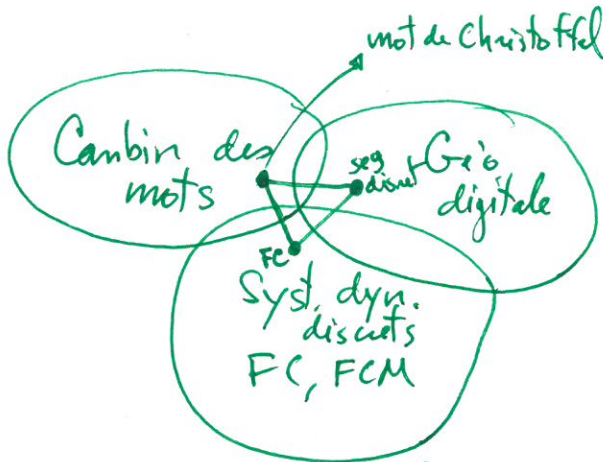 mot de Christoffel
Combin des
mots
seg
discret
Géo
digitale
FC
Syst. dyn.
discrets
FC, FCM